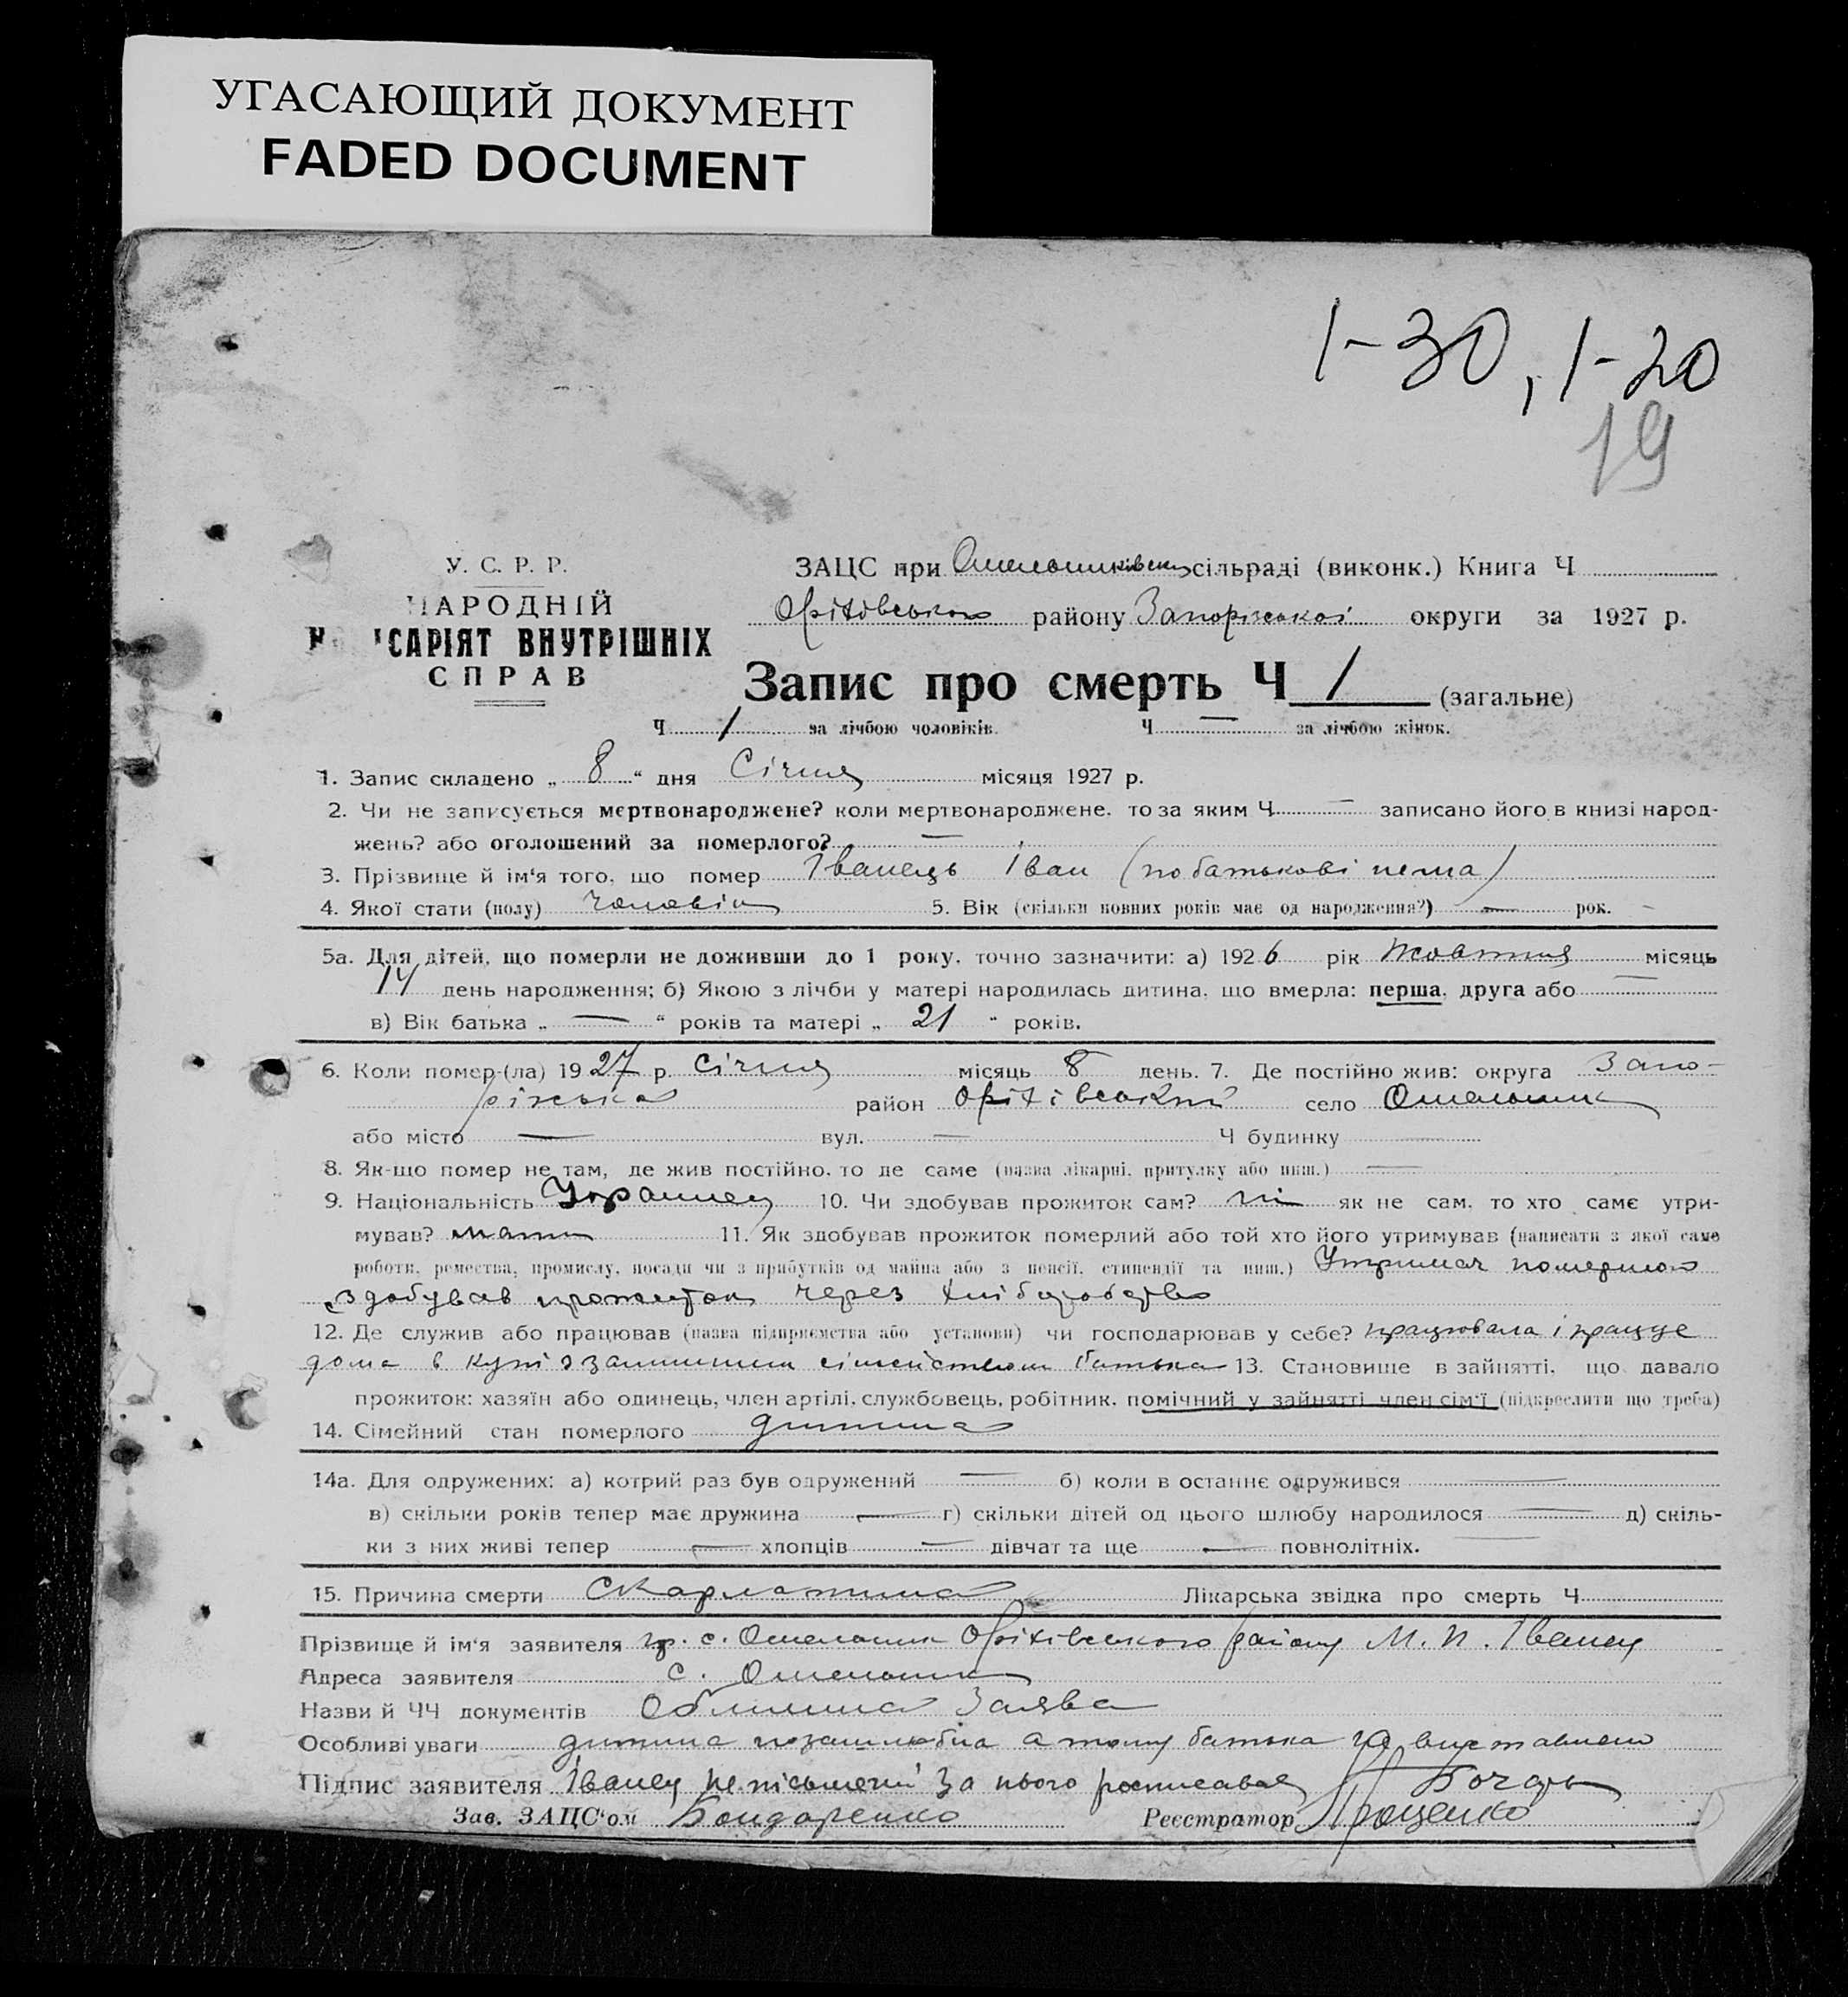 УГАСАЮЩИЙ ДОКУМЕНТ
FADED DOCUMENT
1-30, 1-20
19
У. С. Р. Р.
НАРОДНІЙ
САРІЯТ ВНУТРІШНІХ
СПРАВ
ЗАЦС при сільраді (виконк.) Книга Ч
Оріхівського району Запорізької округи за 1927 р.
Запис про смерть Ч 1 (загальне)
Ч 1 за лічбою чоловіків. Ч — за лічбою жінок.
1. Запис складено „ 8 “ дня Січня місяця 1927 р.
2. Чи не записується мертвонароджене? коли мертвонароджене, то за яким Ч — записано його в книзі народ-
жень? або оголошений за померлого? —
3. Прізвище й ім'я того, що помер Іванець Іван (по батькові нема)
4. Якої стати (полу) чоловіч 5. Вік (скільки повних років має од народження?) — рок.
5а. Для дітей, що померли не доживши до 1 року, точно зазначити: а) 1926 рік Жовтня місяць
14 день народження; б) Якою з лічби у матері народилась дитина, що вмерла: перша, друга або —
в) Вік батька „ — “ років та матері „ 21 “ років.
6. Коли помер-(ла) 1927 р. січня місяць 8 день. 7. Де постійно жив: округа Запо-
різька район Оріхівський село Омельник
або місто — вул. — Ч будинку —
8. Як-що помер не там, де жив постійно, то де саме (назва лікарні, притулку або инш.) —
9. Національність Украинец 10. Чи здобував прожиток сам? ні як не сам, то хто саме утри-
мував? мати 11. Як здобував прожиток померлий або той хто його утримував (написати з якої саме
роботи, ремества, промислу, посади чи з прибутків од майна або з пенсії, стипендії та инш.) Утримач померлого
здобував прожиток через хліборобство
12. Де служив або працював (назва підприємства або установи) чи господарював у себе? працювала і працює
дома в купі з сімейством батька 13. Становище в зайнятті, що давало
прожиток: хазяїн або одинець, член артілі, службовець, робітник, помічний у зайнятті член сім'ї (підкреслити що треба)
14. Сімейний стан померлого дитина
14а. Для одружених: а) котрий раз був одружений — б) коли в останнє одружився —
в) скільки років тепер має дружина — г) скільки дітей од цього шлюбу народилося — д) скіль-
ки з них живі тепер — хлопців — дівчат та ще — повнолітніх. —
15. Причина смерти Скарлатина Лікарська звідка про смерть Ч
Прізвище й ім'я заявителя гр. с. Омельник Оріхівського району М. П. Іванец
Адреса заявителя с. Омельник
Назви й ЧЧ документів заява
Особливі уваги дитина позашлюбна а тому батька не виставлено
Підпис заявителя Іванец неписьмений за нього росписавс
Зав. ЗАЦС'ом Бондаренко Реєстратор Проценко